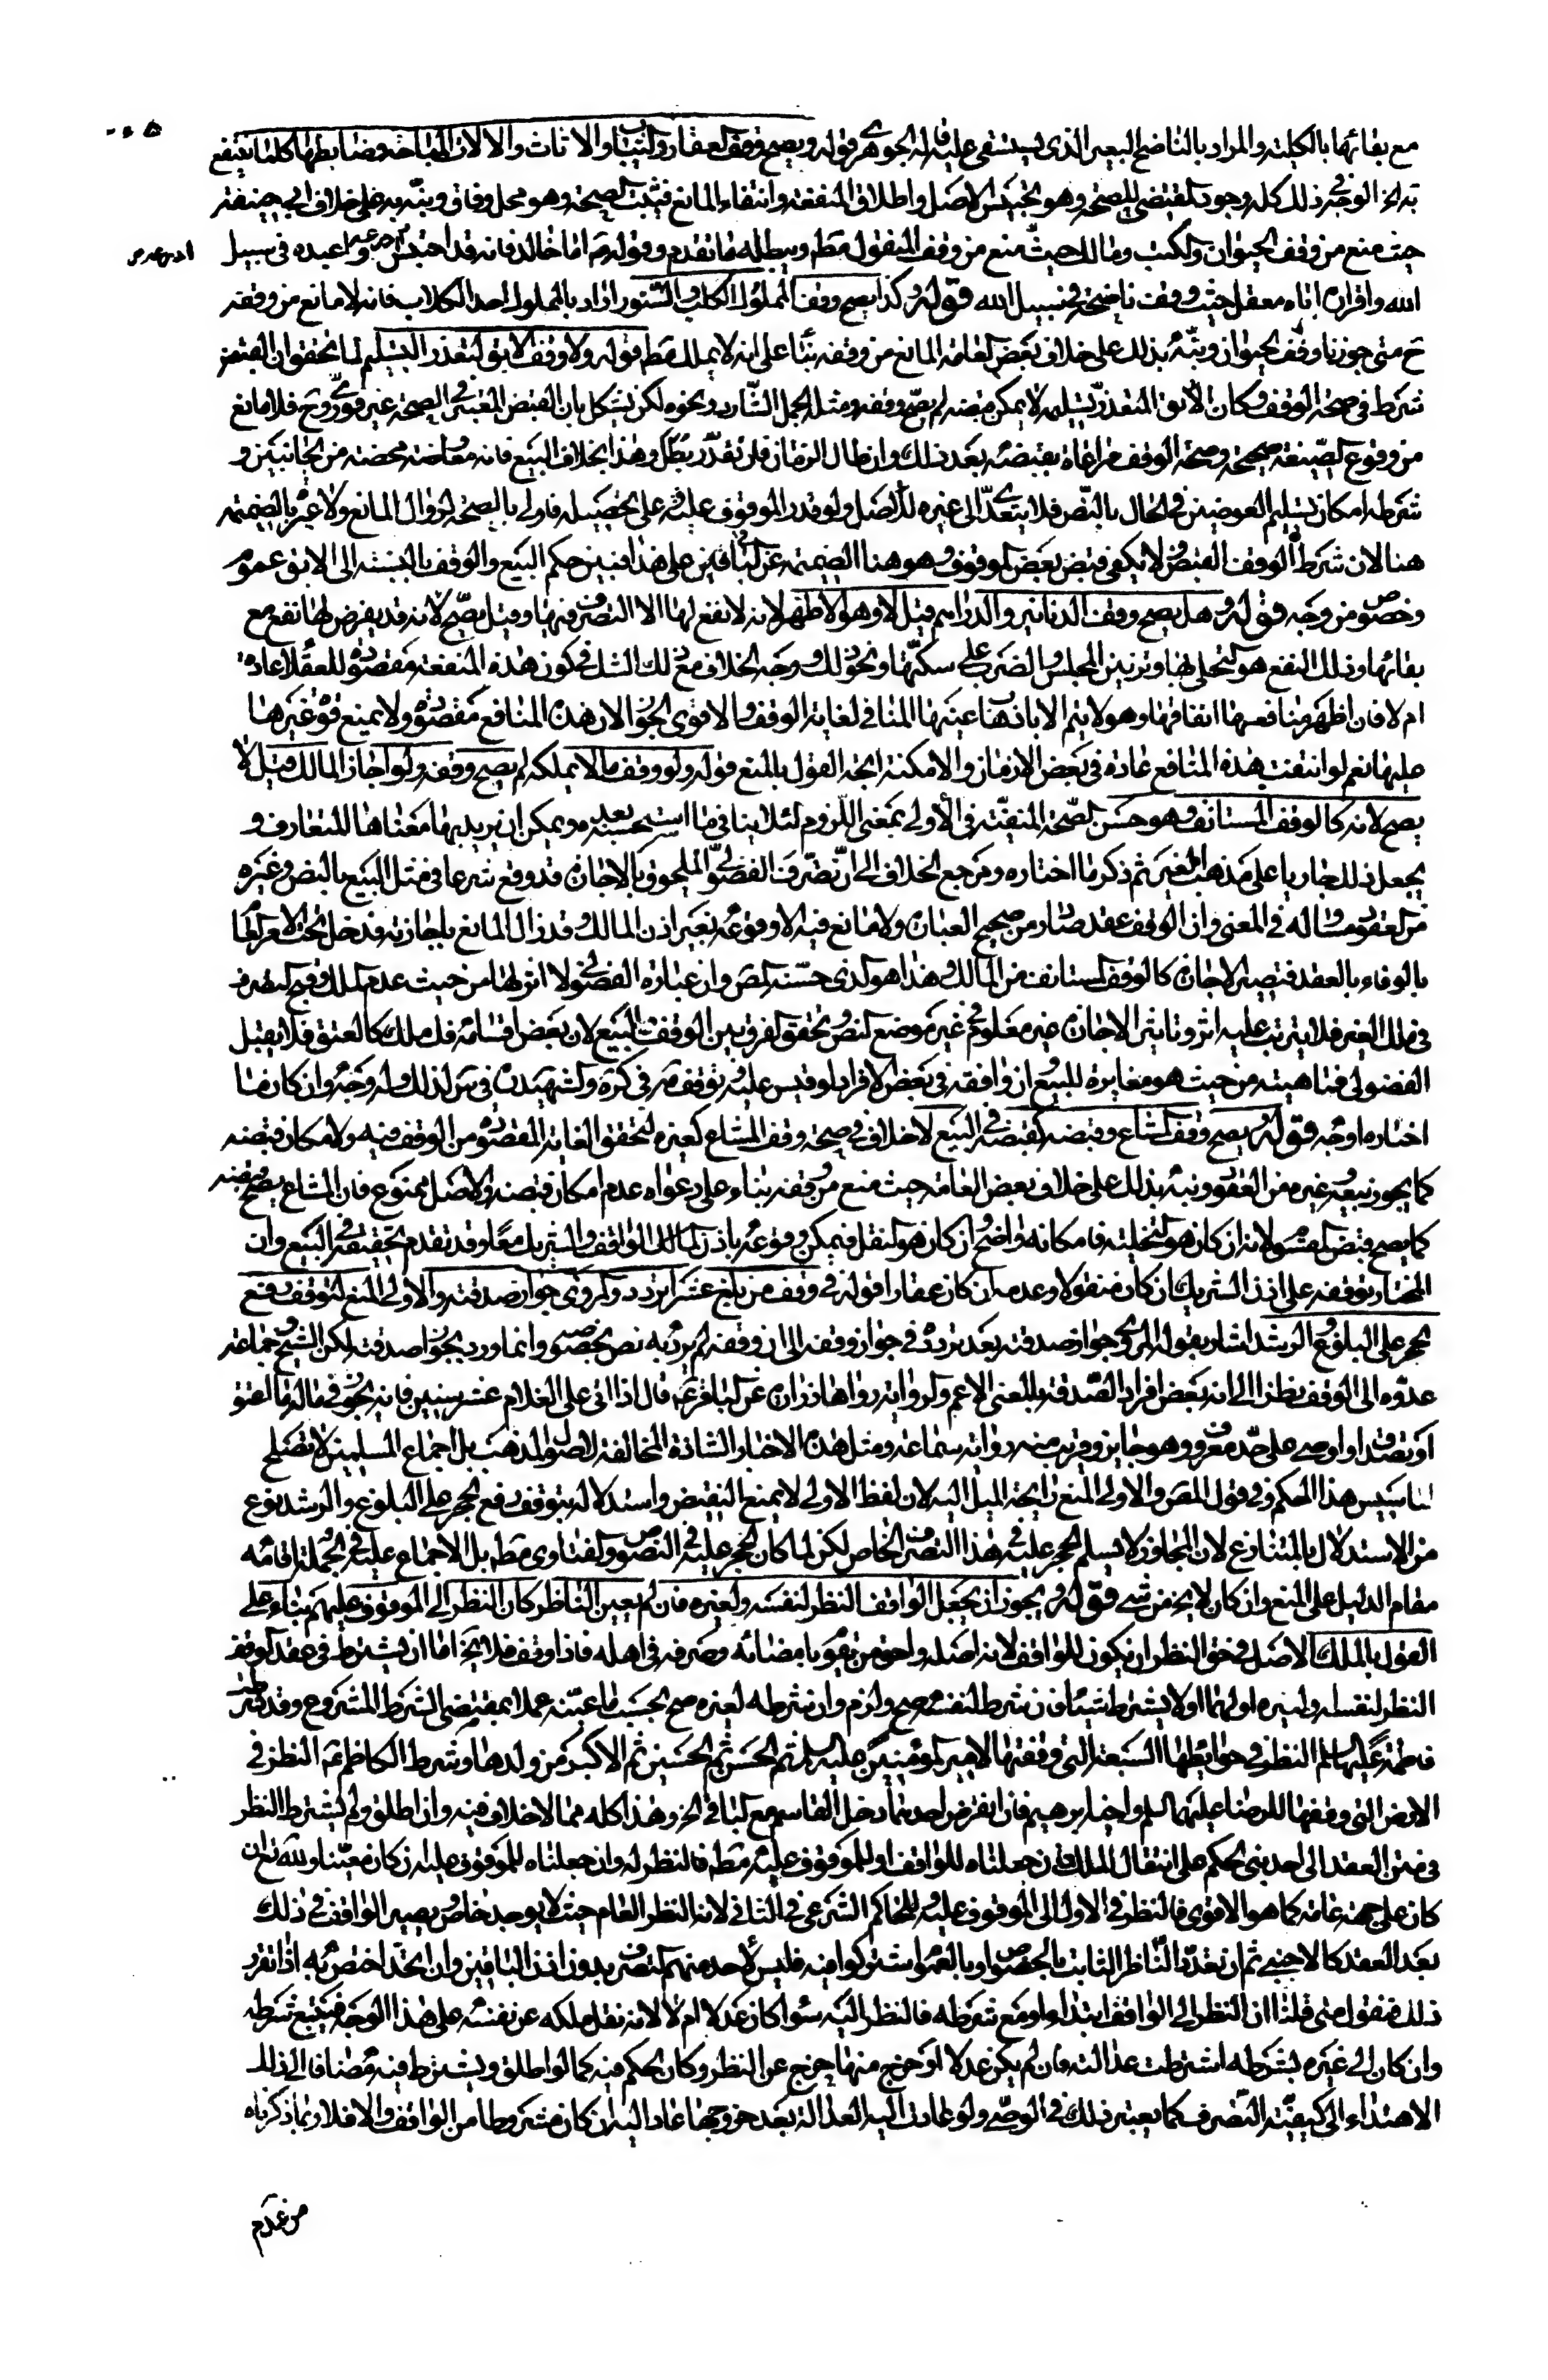 مع بقائها بالكلية والمراد بالناضح البعير الذى يستقى عليه قاله الجوهرى قوله ويصح وقف العقار والثياب والاثاث والالات المباحة وضابطها كلما ينتفع
به الخ الوجه فى ذلك كله وجود المقتضى للصحة وهو تحبيس الاصل واطلاق المنفعة وانتفاء المانع فيثبت الصحة وهو محل وفاق ونبه به على خلاف ابى حنيفة
حيث منع من وقف الحيوان والكتب ومالك حيث منع من وقف المنقول مطم ويبطله ما تقدم وقوله ص اما خالد فانه قد احتبس ادرعه واعبده فى سبيل
الله واقراره اياه معقل حيث وقفت ناضحه فى سبيل الله قوله وكذا يصح وقف المملوك الكلب والسنور اراد بالمملوك احد الكلاب فانه لا مانع من وقفه
ح متى جوزنا وقف الحيوان ونبه بذلك على خلاف بعض العامة المانع من وقفه بناء على انه لا يملك مطم قوله ولا وقف الابق لتعذر التسليم لما تحقق ان القبض
شرط فى صحة الوقف وكان الابق المتعذر تسليمه لا يمكن قبضه لم يصح وقفه ومثله الجمل الشارد ونحوه لكن يشكل بان القبض المعتبر فى الصحة غير فورى وح فلا مانع
من وقوع الصيغة صحيحة وصحة الوقف مراعاة بقبضه بعد ذلك وان طال الزمان فان تعذر بطل وهذا بخلاف البيع فانه معاوضة محضة من الجانبين و
شرطه امكان تسليم العوضين فى الحال بالنص فلا يتعدى الى غيره للاصل ولو قدر الموقوف عليه على تحصيله فاولى بالصحة لزوال المانع ولا عبرة بالضميمة
هنا لان شرط الوقف القبض ولا يكفى قبض بعض الموقوف وهو هنا الضميمة عن الباقى فبين على هذا فبين حكم البيع والوقف بالنسبة الى الابق عموم
وخصوص من وجه قوله وهل يصح وقف الدنانير والدراهم قيل لا وهو الاظهر لانه لا نفع لها الا التصرف فيها وقيل يصح لانه قد يفرض لها نفع مع
بقائها وذلك النفع هو التحلى بها وتزيين المجلس والضرب على سكتها ونحو ذلك ووجه الخلاف مع ذلك الشك فى كون هذه المنفعة مقصودة للعقلاء عادة
ام لا فان اظهر منافعها انفاقها وهو لا يتم الا باذهاب عينها المنافى لغاية الوقف والاقوى الجواز لان هذه المنافع مقصودة ولا يمنع قوة غيرها
عليها نعم لو انتفت هذه المنافع عادة فى بعض الازمان والامكنة اتجه القول بالمنع قوله ولو وقف ما لا يملكه لم يصح وقفه ولو اجاز المالك قيل لا
يصح لانه كالوقف المستانف وهو حسن الصحة المنفية فى الاولى بمعنى اللزوم لئلا ينافى ما استحسنه بعده ويمكن ان يريد بها معناها المتعارف و
يجعل ذلك جاريا على مذهب الغير ثم ذكر ما اختاره ومرجع الخلاف الى ان تصرف الفضولى الملحوق بالاجازة قد وقع شرعا فى مثل البيع بالنص وغيره
من العقود مشاكله فى المعنى وان الوقف عقد صادر من صحيح العبارة ولا مانع فيه الا وقوعه بغير اذن المالك وقد زال المانع باجازته فدخل تحت الامر العام
بالوفاء بالعقد فتصير الاجازة كالوقف المستانف من المالك وهذا هو الذى حسنه المص وان عبارة الفضولى لا اثر لها من حيث عدم الملك وقبح التصرف
فى ملك الغير فلا يترتب عليه اثر وتاثير الاجازة غير معلوم فى غير موضع النص وتحقق الفرق بين الوقف والبيع لان بعض اقسامه فك ملك كالعتق فلا يقبل
الفضولى فماهيته من حيث هو مغايرة للبيع وان وافقه فى بعض الافراد لو قيس عليه وتوقف مر فى كره والشهيد ره فى س لذلك وله وجه وان كان ما
اختاره اوجه قوله ويصح وقف المشاع وقبضه كقبضه فى البيع لا خلاف فى صحة وقف المشاع كغيره لتحقق الغاية المقصودة من الوقف فيه ولامكان قبضه
كما يجوز بيعه وغيره من العقود ونبه بذلك على خلاف بعض العامة حيث منع من وقفه بناء على دعواه عدم امكان قبضه والاصل ممنوع فان المشاع يصح قبضه
كما يصح قبض المقسوم لانه ان كان هو التخلية فامكانه واضح وان كان هو النقل فيمكن وقوعه باذن المالك الواقف والشريك معا وقد تقدم تحقيقه فى البيع وان
المختار توقفه على اذن الشريك ان كان منقولا وعدمه ان كان عقارا قوله فى وقف من بلغ عشرا تردد والمروى جواز صدقته والاولى المنع لتوقف رفع
الحجر على البلوغ والرشد اشار بقوله المروى جواز صدقته بعد تردده فى جواز وقفه الى ان وقفه لم يرد به نص بخصوصه وانما ورد بجواز صدقته لكن الشيخ وجماعة
عدوه الى الوقف نظرا الى انه بعض افراد الصدقة بالمعنى الاعم والرواية رواها زرارة عن الباقر ع قال اذا اتى على الغلام عشر سنين فانه يجوز فى ماله ما اعتق
او تصدق او اوصى على حد معروف وهو جايز وقريب منه رواية سماعة ومثل هذه الاخبار الشاذة المخالفة لاصول المذهب بل اجماع المسلمين لا تصلح
لتاسيس هذا الحكم وفى قول المص والاولى المنع رايحة الميل اليه لان لفظ الاولى لا يمنع النقيض واستدلاله بتوقف رفع الحجر على البلوغ والرشد نوع
من الاستدلال بالمتنازع لان المجوز لا يسلم الحجر عليه فى هذا التصرف الخاص لكن لما كان الحجر عليه فى النصوص والفتاوى مطم بل الاجماع عليه فى الجملة اقامه
مقام الدليل على المنع وان كان لا يخ من شى قوله ويجوز ان يجعل الواقف النظر لنفسه ولغيره فان لم يعين الناظر كان النظر الى الموقوف عليهم بناء على
القول بالملك الاصل فى حق النظر ان يكون للواقف لانه اصله واحق من يقوم بامضائه وصرفه فى اهله فاذا وقف فلا يخ اما ان يشترط فى عقد الوقف
النظر لنفسه ولغيره او لهما او لا يشترط شيئا فان شرط لنفسه صح ولزم وان شرطه لغيره صح بحسب ما عينه عملا بمقتضى الشرط المشروع وقد شرطت
فاطمة عليها السلم النظر فى حوائطها السبعة التى وقفتها لامير المؤمنين عليه السلم ثم الحسن ثم الحسين ثم الاكبر من ولدها وشرط الكاظم ع النظر فى
الارض التى وقفها للرضا عليهما السلم واخيه ابرهيم فان انقرض احدهما دخل القاسم مع الباقى الخ وهذا كله مما لا خلاف فيه وان اطلق ولم يشترط النظر
فى متن العقد الى احد بنى الحكم على انتقال الملك فان جعلناه للواقف او للموقوف عليه مطم فالنظر له وان جعلناه للموقوف عليه ان كان معينا ولله تع ان
كان على جهة عامة كما هو الاقوى فالنظر فى الاول الى الموقوف عليه وللحاكم الشرعى فى الثانى لانه الناظر العام حيث لا يوجد خاص ويصير الواقف فى ذلك
بعد العقد كالاجنبى ثم ان تعدد الناظر الثابت بالخصوص او بالعموم اشتركوا فيه فليس لاحد منهم التصرف بدون اذن الباقين وان اتحد اختص به اذا تقرر
ذلك فنقول متى قلنا ان النظر الى الواقف ابتداء او مع شرطه فالنظر اليه سواء كان عدلا ام لا لانه نقل ملكه عن نفسه على هذا الوجه فيتبع شرطه
وان كان الى غيره بشرطه اشترطت عدالته فان لم يكن عدلا او خرج منها خرج عن النظر وكان الحكم فيه كما لو اطلق ويشترط فيه مضافا الى ذلك
الاهتداء الى كيفية التصرف كما يعتبر ذلك فى الوصى ولو عادت اليه العدالة بعد خروجها عاد اليه ان كان مشروطا من الواقف والا فلا وبما ذكرناه
من عدم